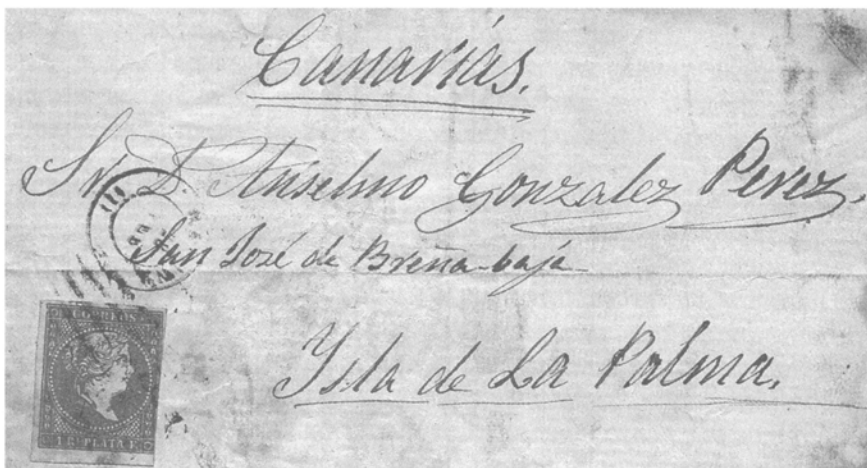 Canarias.
Sr. D. Anselmo Gonzalez Perez,
San José de Breña-baja
Ysla de La Palma.
CORREOS
1 Rl. PLATA F.